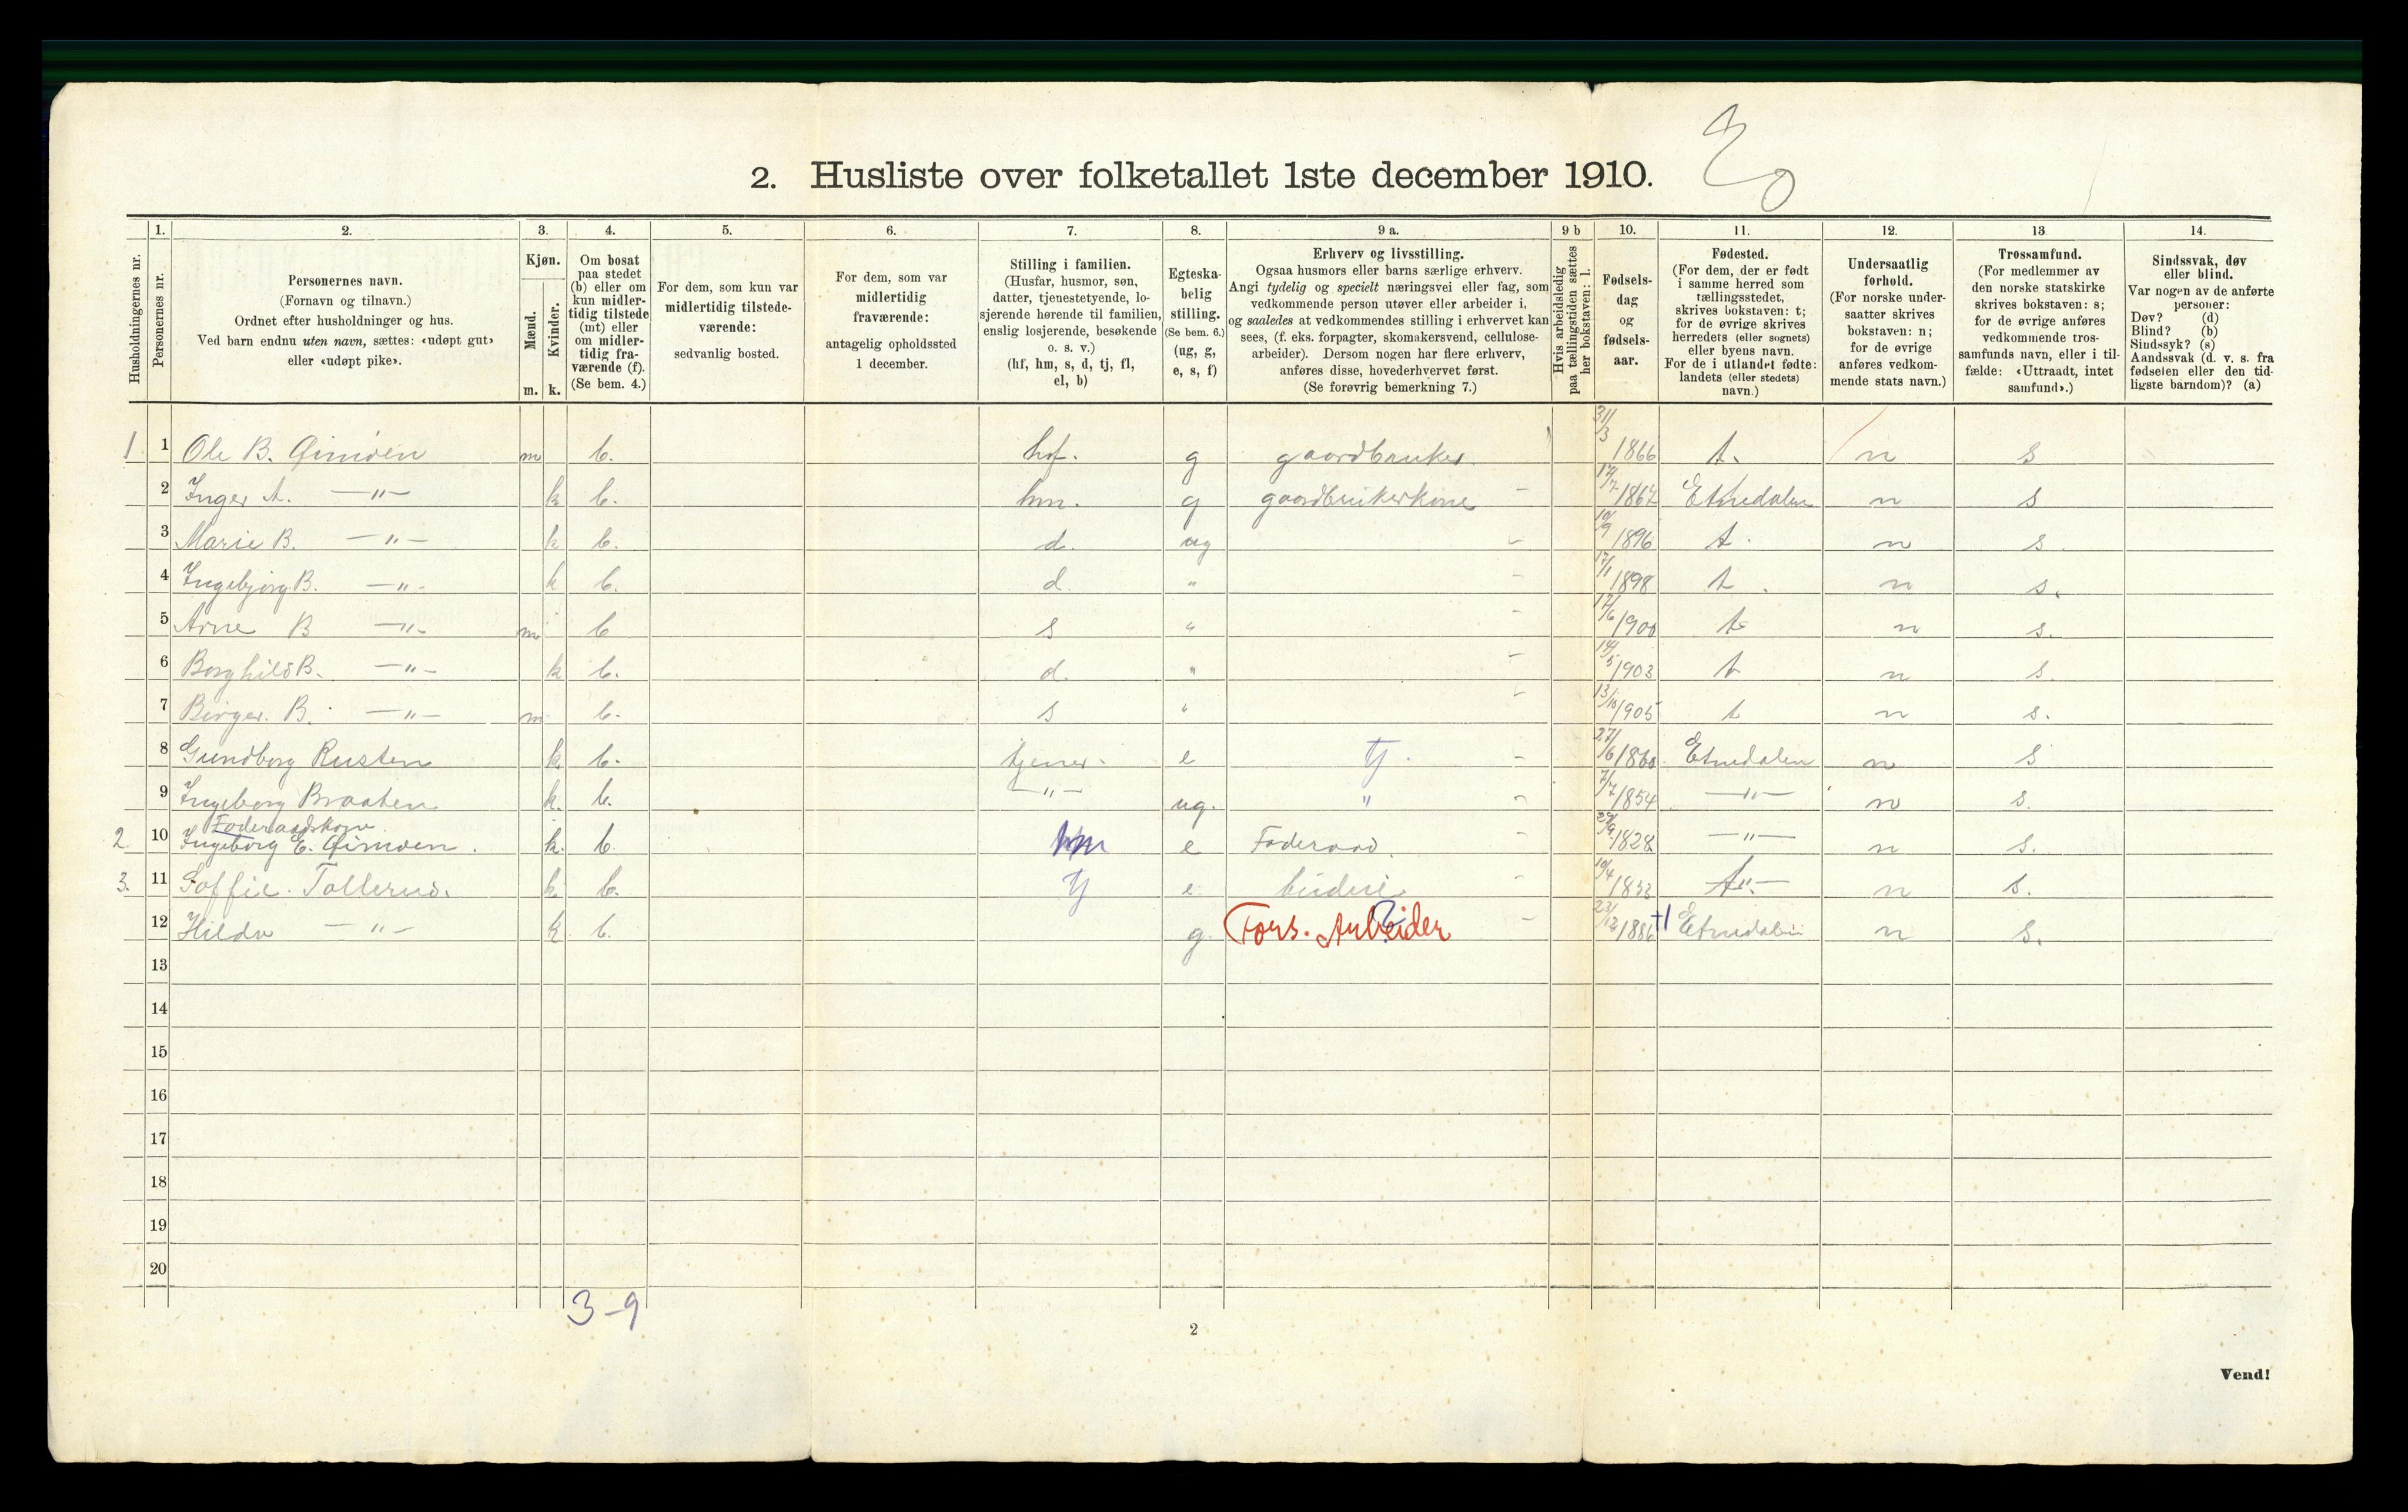 2. Husliste over folketallet 1ste december 1910.
1. 2. 3. 4. 5. 6. 7. 8. 9 a. 9 b 10. 11. 12. 13. 14.
Husholdningernes nr.
Personernes nr.
Personernes navn.
(Fornavn og tilnavn.)
Ordnet efter husholdninger og hus.
Ved barn endnu uten navn, sættes: «udøpt gut»
eller «udøpt pike».
Kjøn.
Mænd.
Kvinder.
m. k.
Om bosat
paa stedet
(b) eller om
kun midler-
tidig tilstede
(mt) eller
om midler-
tidig fra-
værende (f).
(Se bem. 4.)
For dem, som kun var
midlertidig tilstede-
værende:
sedvanlig bosted.
For dem, som var
midlertidig
fraværende:
antagelig opholdssted
1 december.
Stilling i familien.
(Husfar, husmor, søn,
datter, tjenestetyende, lo-
sjerende hørende til familien,
enslig losjerende, besøkende
o. s. v.)
(hf, hm, s, d, tj, fl,
el, b)
Egteska-
belig
stilling.
(Se bem. 6.)
(ug, g,
e, s, f)
Erhverv og livsstilling.
Ogsaa husmors eller barns særlige erhverv.
Angi tydelig og specielt næringsvei eller fag, som
vedkommende person utøver eller arbeider i,
og saaledes at vedkommendes stilling i erhvervet kan
sees, (f. eks. forpagter, skomakersvend, cellulose-
arbeider). Dersom nogen har flere erhverv,
anføres disse, hovederhvervet først.
(Se forøvrig bemerkning 7.)
Hvis arbeidsledig
paa tællingstiden sættes
her bokstaven: l.
Fødsels-
dag
og
fødsels-
aar.
Fødested.
(For dem, der er født
i samme herred som
tællingsstedet,
skrives bokstaven: t;
for de øvrige skrives
herredets (eller sognets)
eller byens navn.
For de i utlandet fødte:
landets (eller stedets)
navn.)
Undersaatlig
forhold.
(For norske under-
saatter skrives
bokstaven: n;
for de øvrige
anføres vedkom-
mende stats navn.)
Trossamfund.
(For medlemmer av
den norske statskirke
skrives bokstaven: s;
for de øvrige anføres
vedkommende tros-
samfunds navn, eller i til-
fælde: «Uttraadt, intet
samfund».)
Sindssvak, døv
eller blind.
Var nogen av de anførte
personer:
Døv? (d)
Blind? (b)
Sindssyk? (s)
Aandssvak (d. v. s. fra
fødselen eller den tid-
ligste barndom)? (a)
1 1 Ole B. Gimøen m b. hf. g gaardbruker 31/3 1866 t. n s
2 Inger A. —"— k b. hm. g gaardbrukerkone - 1867 Etnedalen n s
3 Marie B. —"— k b. d. ug - 10/9 1896 t. n s.
4 Ingebjørg B. —"— k b. d. " - 17/11 1898 t. n s.
5 Arne B —"— m b s " - 17/6 1900 t n s.
6 Borghild B. —"— k b. d. " - 14/5 1903 t n s.
7 Birger. B. —"— m b. s " - 13/10 1905 t n s.
8 Gundborg Rusten k. b. tjener. e Tj. - 27/6 1860 Etnedalen n s
9 Ingeborg Braaten k. b. —"— ug. " - 7/7 1854 —"— n s.
Føderaadskone
2. 10 Ingeborg E. Gimøen. k. b. hm e Føderaad. - 29/9 1828 —"— n s.
3. 11 Soffie. Tollerud. k b. Tj e. budeie - 10/4 1853 t n s.
12 Hilda —"— k b. g. Fors. Arbeider - 23/12 1886 Etnedalen n s.
13
14
15
16
17
18
19
20
3-9
2
Vend!